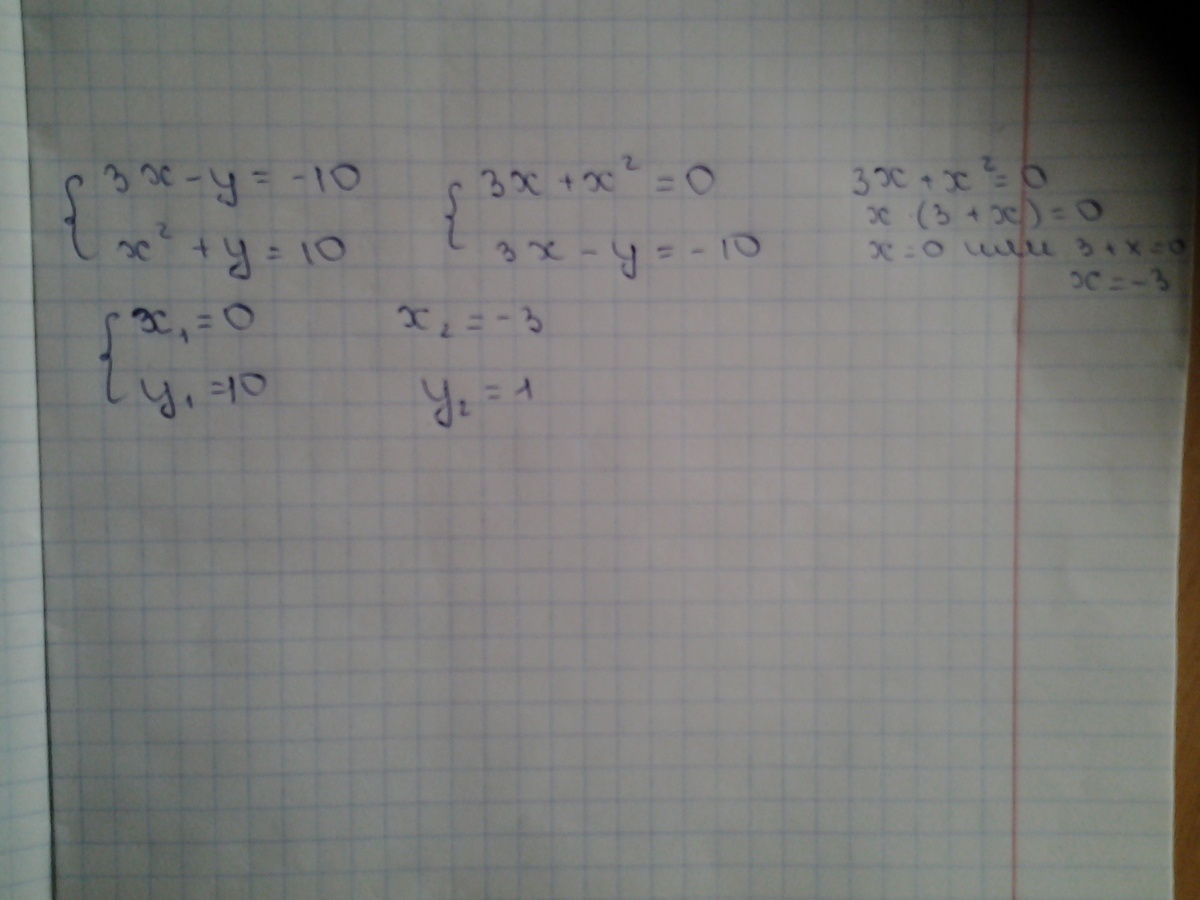 3x - y = -10
x² + y = 10
3x + x² = 0
3x - y = -10
3x + x² = 0
x · (3 + x) = 0
x = 0 или 3 + x = 0
x = -3
x₁ = 0
y₁ = 10
x₂ = -3
y₂ = 1